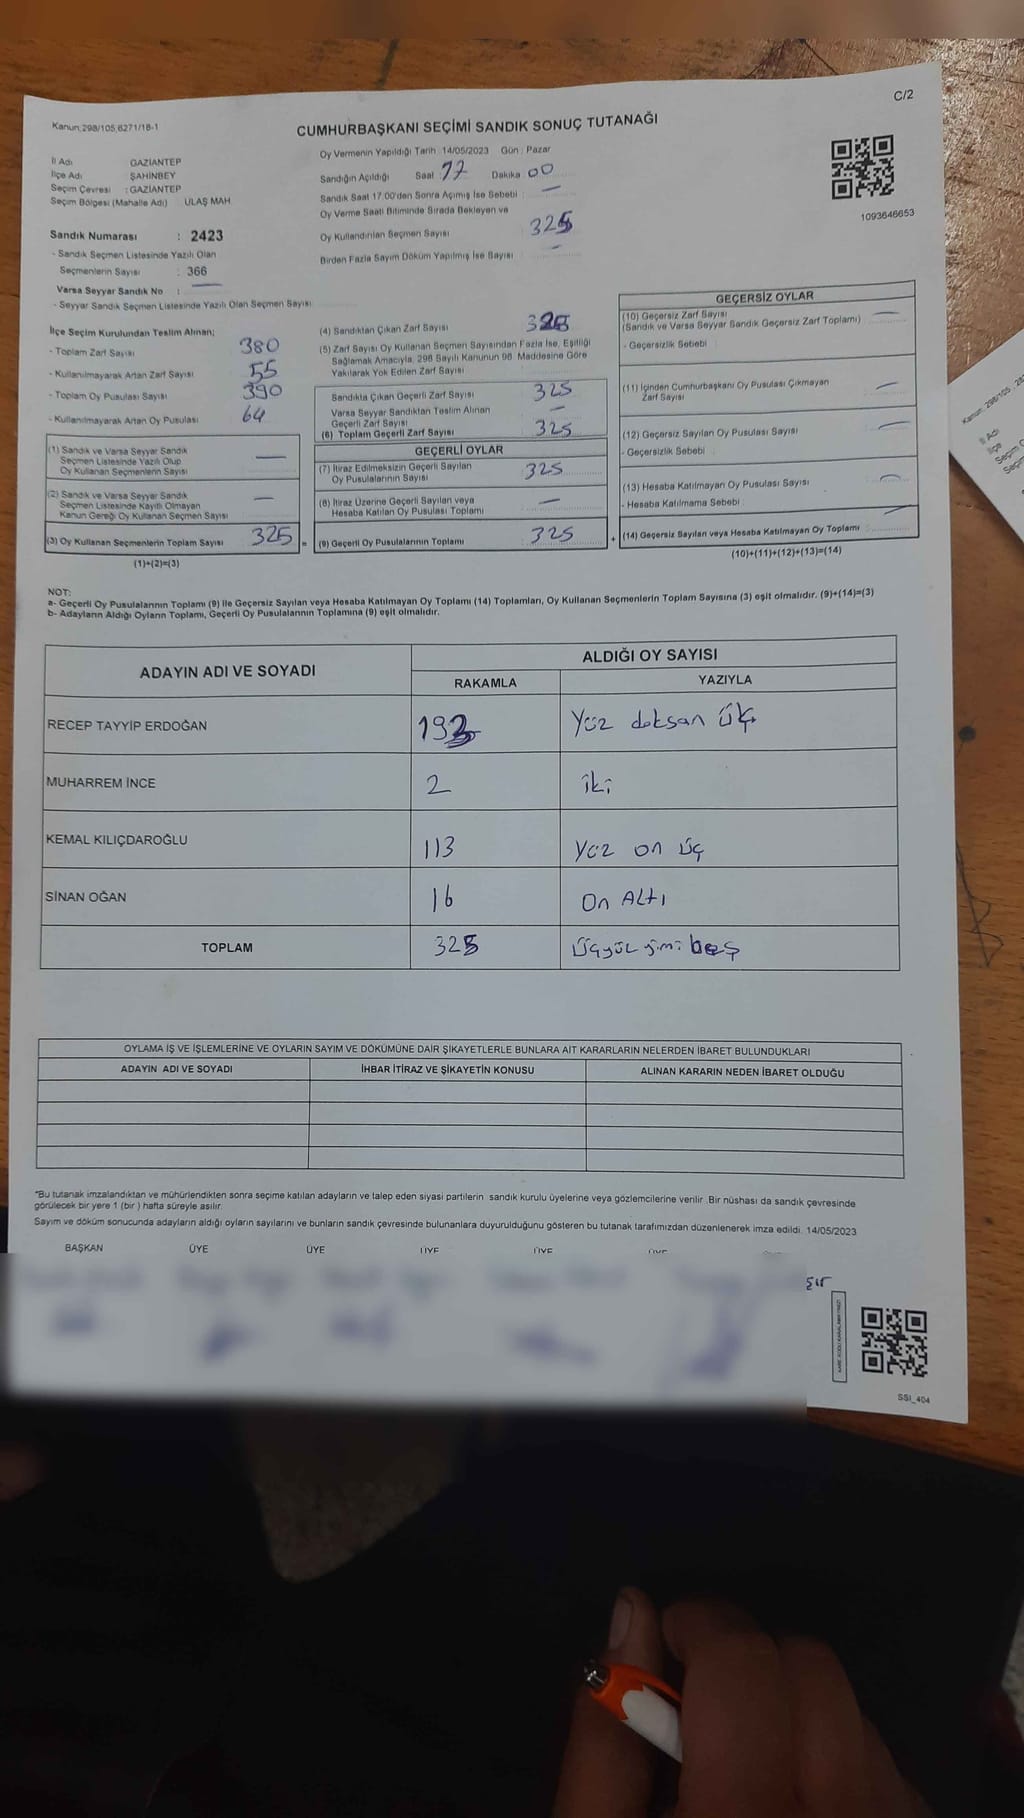 C/2
Kanun:298/105,6271/18-1
CUMHURBAŞKANI SEÇİMİ SANDIK SONUÇ TUTANAĞI
İl Adı GAZİANTEP
İlçe Adı ŞAHİNBEY
Seçim Çevresi : GAZİANTEP
Seçim Bölgesi (Mahalle Adı) ULAŞ MAH
Sandık Numarası : 2423
- Sandık Seçmen Listesinde Yazılı Olan
Seçmenlerin Sayısı : 366
Varsa Seyyar Sandık No : —
- Seyyar Sandık Seçmen Listesinde Yazılı Olan Seçmen Sayısı
Oy Vermenin Yapıldığı Tarih :14/05/2023 Gün : Pazar
Sandığın Açıldığı Saat : 17 Dakika 00
Sandık Saat 17:00'den Sonra Açılmış İse Sebebi : —
Oy Verme Saati Bitiminde Sırada Bekleyen ve
Oy Kullandırılan Seçmen Sayısı 325
Birden Fazla Sayım Döküm Yapılmış İse Sayısı : —
1093646653
İlçe Seçim Kurulundan Teslim Alınan;
- Toplam Zarf Sayısı 380
- Kullanılmayarak Artan Zarf Sayısı 55
- Toplam Oy Pusulası Sayısı 390
- Kullanılmayarak Artan Oy Pusulası 64
(1) Sandık ve Varsa Seyyar Sandık
Seçmen Listesinde Yazılı Olup
Oy Kullanan Seçmenlerin Sayısı —
(2) Sandık ve Varsa Seyyar Sandık
Seçmen Listesinde Kayıtlı Olmayan
Kanun Gereği Oy Kullanan Seçmen Sayısı —
(3) Oy Kullanan Seçmenlerin Toplam Sayısı 325 =
(1)+(2)=(3)
(4) Sandıktan Çıkan Zarf Sayısı 325
(5) Zarf Sayısı Oy Kullanan Seçmen Sayısından Fazla İse, Eşitliği
Sağlamak Amacıyla, 298 Sayılı Kanunun 98. Maddesine Göre
Yakılarak Yok Edilen Zarf Sayısı
Sandıkta Çıkan Geçerli Zarf Sayısı 325
Varsa Seyyar Sandıktan Teslim Alınan
Geçerli Zarf Sayısı —
(6) Toplam Geçerli Zarf Sayısı 325
GEÇERLİ OYLAR
(7) İtiraz Edilmeksizin Geçerli Sayılan
Oy Pusulalarının Sayısı 325
(8) İtiraz Üzerine Geçerli Sayılan veya
Hesaba Katılan Oy Pusulası Toplamı —
(9) Geçerli Oy Pusulalarının Toplamı 325 +
GEÇERSİZ OYLAR
(10) Geçersiz Zarf Sayısı —
(Sandık ve Varsa Seyyar Sandık Geçersiz Zarf Toplamı)
- Geçersizlik Sebebi :
(11) İçinden Cumhurbaşkanı Oy Pusulası Çıkmayan
Zarf Sayısı —
(12) Geçersiz Sayılan Oy Pusulası Sayısı —
- Geçersizlik Sebebi :
(13) Hesaba Katılmayan Oy Pusulası Sayısı —
- Hesaba Katılmama Sebebi :
(14) Geçersiz Sayılan veya Hesaba Katılmayan Oy Toplamı : —
(10)+(11)+(12)+(13)=(14)
NOT:
a- Geçerli Oy Pusulalarının Toplamı (9) ile Geçersiz Sayılan veya Hesaba Katılmayan Oy Toplamı (14) Toplamları, Oy Kullanan Seçmenlerin Toplam Sayısına (3) eşit olmalıdır. (9)+(14)=(3)
b- Adayların Aldığı Oyların Toplamı, Geçerli Oy Pusulalarının Toplamına (9) eşit olmalıdır.
ADAYIN ADI VE SOYADI ALDIĞI OY SAYISI
RAKAMLA YAZIYLA
RECEP TAYYİP ERDOĞAN 193 Yüz doksan Üç
MUHARREM İNCE 2 iki
KEMAL KILIÇDAROĞLU 113 Yüz on üç
SİNAN OĞAN 16 On Altı
TOPLAM 325 Üçyüz yirmi beş
OYLAMA İŞ VE İŞLEMLERİNE VE OYLARIN SAYIM VE DÖKÜMÜNE DAİR ŞİKAYETLERLE BUNLARA AİT KARARLARIN NELERDEN İBARET BULUNDUKLARI
ADAYIN ADI VE SOYADI İHBAR İTİRAZ VE ŞİKAYETİN KONUSU ALINAN KARARIN NEDEN İBARET OLDUĞU
*Bu tutanak imzalandıktan ve mühürlendikten sonra seçime katılan adayların ve talep eden siyasi partilerin sandık kurulu üyelerine veya gözlemcilerine verilir .Bir nüshası da sandık çevresinde
görülecek bir yere 1 (bir ) hafta süreyle asılır.
Sayım ve döküm sonucunda adayların aldığı oyların sayılarını ve bunların sandık çevresinde bulunanlara duyurulduğunu gösteren bu tutanak tarafımızdan düzenlenerek imza edildi. 14/05/2023
BAŞKAN ÜYE ÜYE ÜYE ÜYE ÜYE
SSI_404
Kanun: 298/105
İl Adı
İlçe